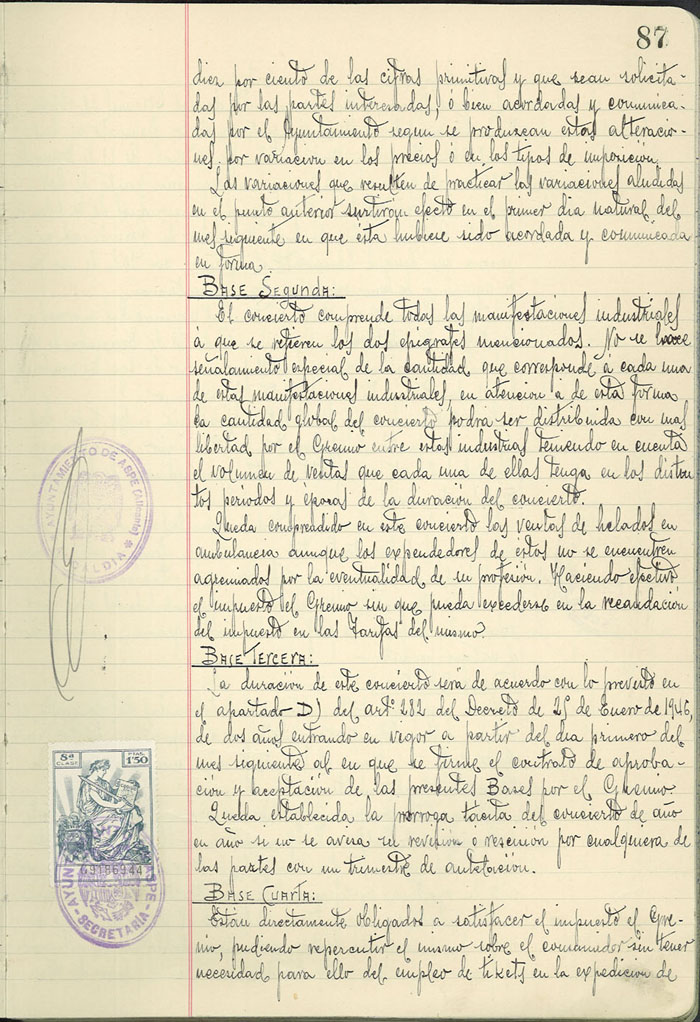 87
diez por ciento de las cifras primitivas y que sean solicita-
das por las partes interesadas, ó bien acordadas y comunica-
das por el Ayuntamiento segun se produzcan estas alteracio-
nes por variacion en los precios ó en los tipos de imposición.
Las variaciones que resulten de practicar las variaciones aludidas
en el punto anterior surtiran efecto en el primer dia natural del
mes siguiente en que ésta hubiese sido acordada y comunicada
en forma.
BASE SEGUNDA:
El concierto comprende todas las manifestaciones industriales
á que se refieren los dos epigrafes mencionados. No se hace
señalamiento especial de la cantidad que corresponde á cada una
de estas manifestaciones industriales, en atencion a de esta forma
la cantidad global del concierto podra ser distribuida con mas
libertad por el Gremio entre estas industrias teniendo en cuenta
el volumen de ventas que cada una de ellas tenga en los distin
tos periodos y épocas de la duración del concierto.
Queda comprendido en este concierto las ventas de helados en
ambulancia aunque los expendedores de estos no se encuentren
agremiados por la eventualidad de su profesión. Haciendo efectivo
el impuesto el Gremio sin que pueda excederse en la recaudación
del impuesto en las Tarifas del mismo.
BASE TERCERA:
La duración de este concierto será de acuerdo con lo previsto en
el apartado D) del artº. 282 del Decreto de 25 de Enero de 1946,
de dos años entrando en vigor a partir del dia primero del
mes siguiente al en que se firme el contrato de aproba-
cion y aceptación de las presentes Bases por el Gremio
Queda establecida la prorroga tacita del concierto de año
en año si no se avisa su revisión o rescision por cualquiera de
las partes con un trimestre de antelación.
BASE CUARTA:
Están directamente obligados a satisfacer el impuesto el Gre-
mio, pudiendo repercutir el mismo sobre el consumidor sin tener
necesidad para ello del empleo de tikets en la expedicion de
AYUNTAMIENTO DE ASPE (Alicante)
ALCALDIA
8ª CLASE
PTAS. 1'50
SECRETARIA